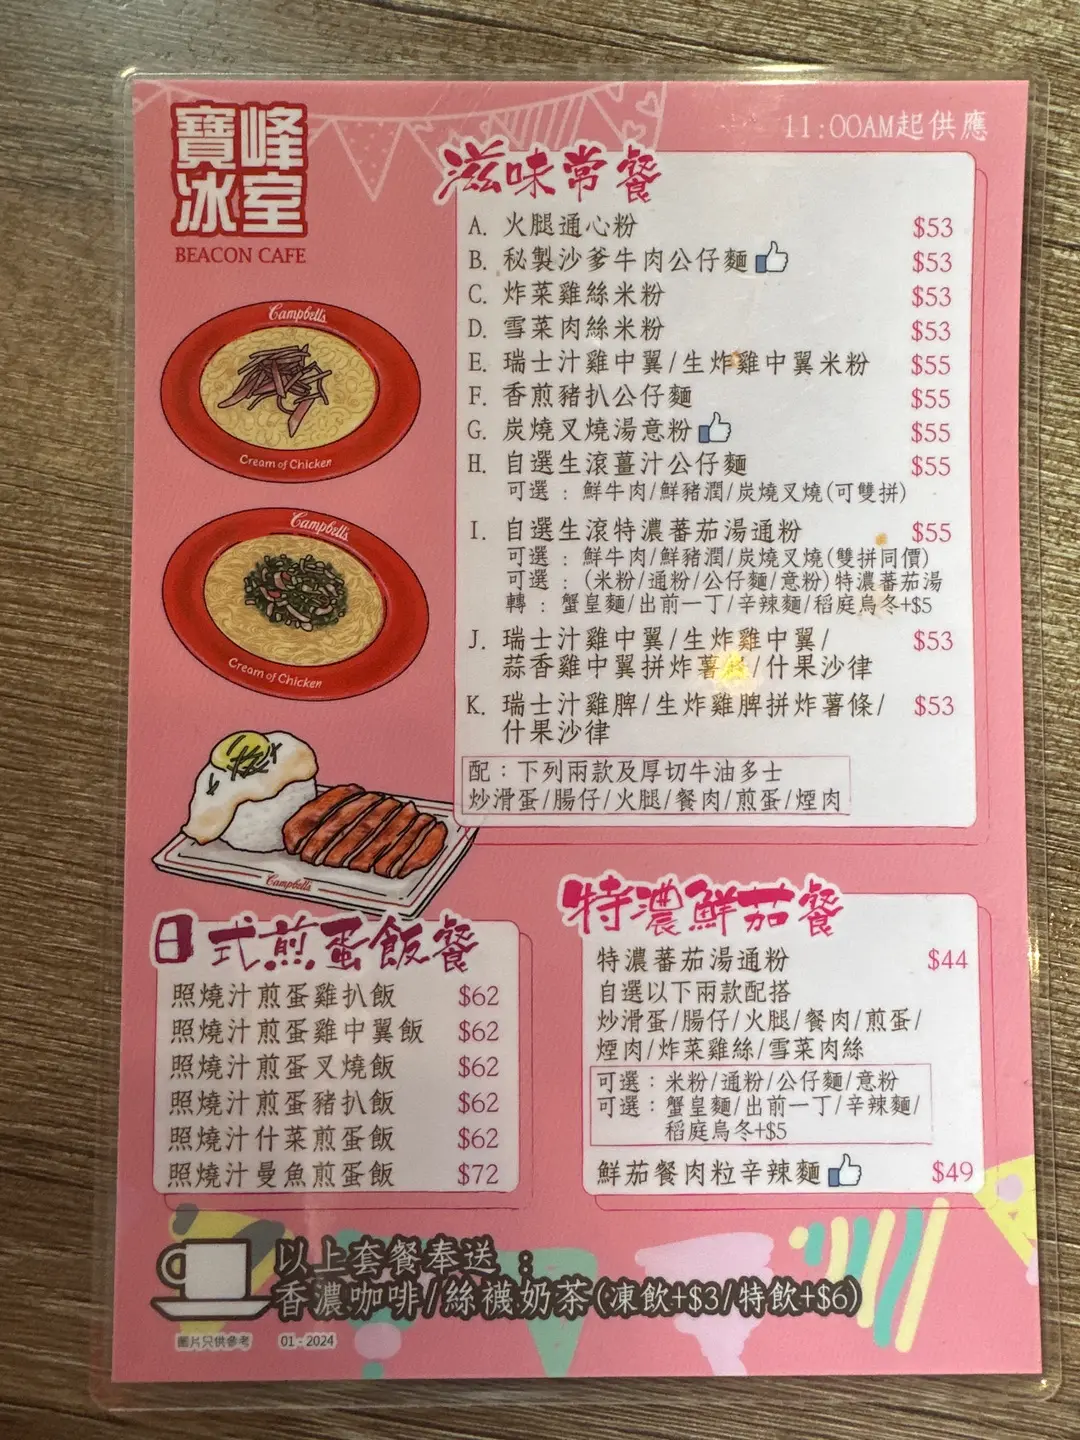 寶峰
冰室
BEACON CAFE
11:00AM起供應
滋味常餐
A. 火腿通心粉 $53
B. 秘製沙爹牛肉公仔麵 $53
C. 炸菜雞絲米粉 $53
D. 雪菜肉絲米粉 $53
E. 瑞士汁雞中翼/生炸雞中翼米粉 $55
F. 香煎豬扒公仔麵 $55
G. 炭燒叉燒湯意粉 $55
H. 自選生滾薑汁公仔麵 $55
可選 : 鮮牛肉/鮮豬潤/炭燒叉燒(可雙拼)
I. 自選生滾特濃蕃茄湯通粉 $55
可選 : 鮮牛肉/鮮豬潤/炭燒叉燒(雙拼同價)
可選 : (米粉/通粉/公仔麵/意粉)特濃蕃茄湯
轉 : 蟹皇麵/出前一丁/辛辣麵/稻庭烏冬+$5
J. 瑞士汁雞中翼/生炸雞中翼/ $53
蒜香雞中翼拼炸薯條/什果沙律
K. 瑞士汁雞脾/生炸雞脾拼炸薯條/ $53
什果沙律
配 : 下列兩款及厚切牛油多士
炒滑蛋/腸仔/火腿/餐肉/煎蛋/煙肉
Campbell's
Cream of Chicken
Campbell's
Cream of Chicken
Campbell's
日式煎蛋飯餐
照燒汁煎蛋雞扒飯 $62
照燒汁煎蛋雞中翼飯 $62
照燒汁煎蛋叉燒飯 $62
照燒汁煎蛋豬扒飯 $62
照燒汁什菜煎蛋飯 $62
照燒汁曼魚煎蛋飯 $72
特濃鮮茄餐
特濃蕃茄湯通粉 $44
自選以下兩款配搭
炒滑蛋/腸仔/火腿/餐肉/煎蛋/
煙肉/炸菜雞絲/雪菜肉絲
可選 : 米粉/通粉/公仔麵/意粉
可選 : 蟹皇麵/出前一丁/辛辣麵/
稻庭烏冬+$5
鮮茄餐肉粒辛辣麵 $49
以上套餐奉送 :
香濃咖啡/絲襪奶茶(凍飲+$3/特飲+$6)
圖片只供參考 01 - 2024